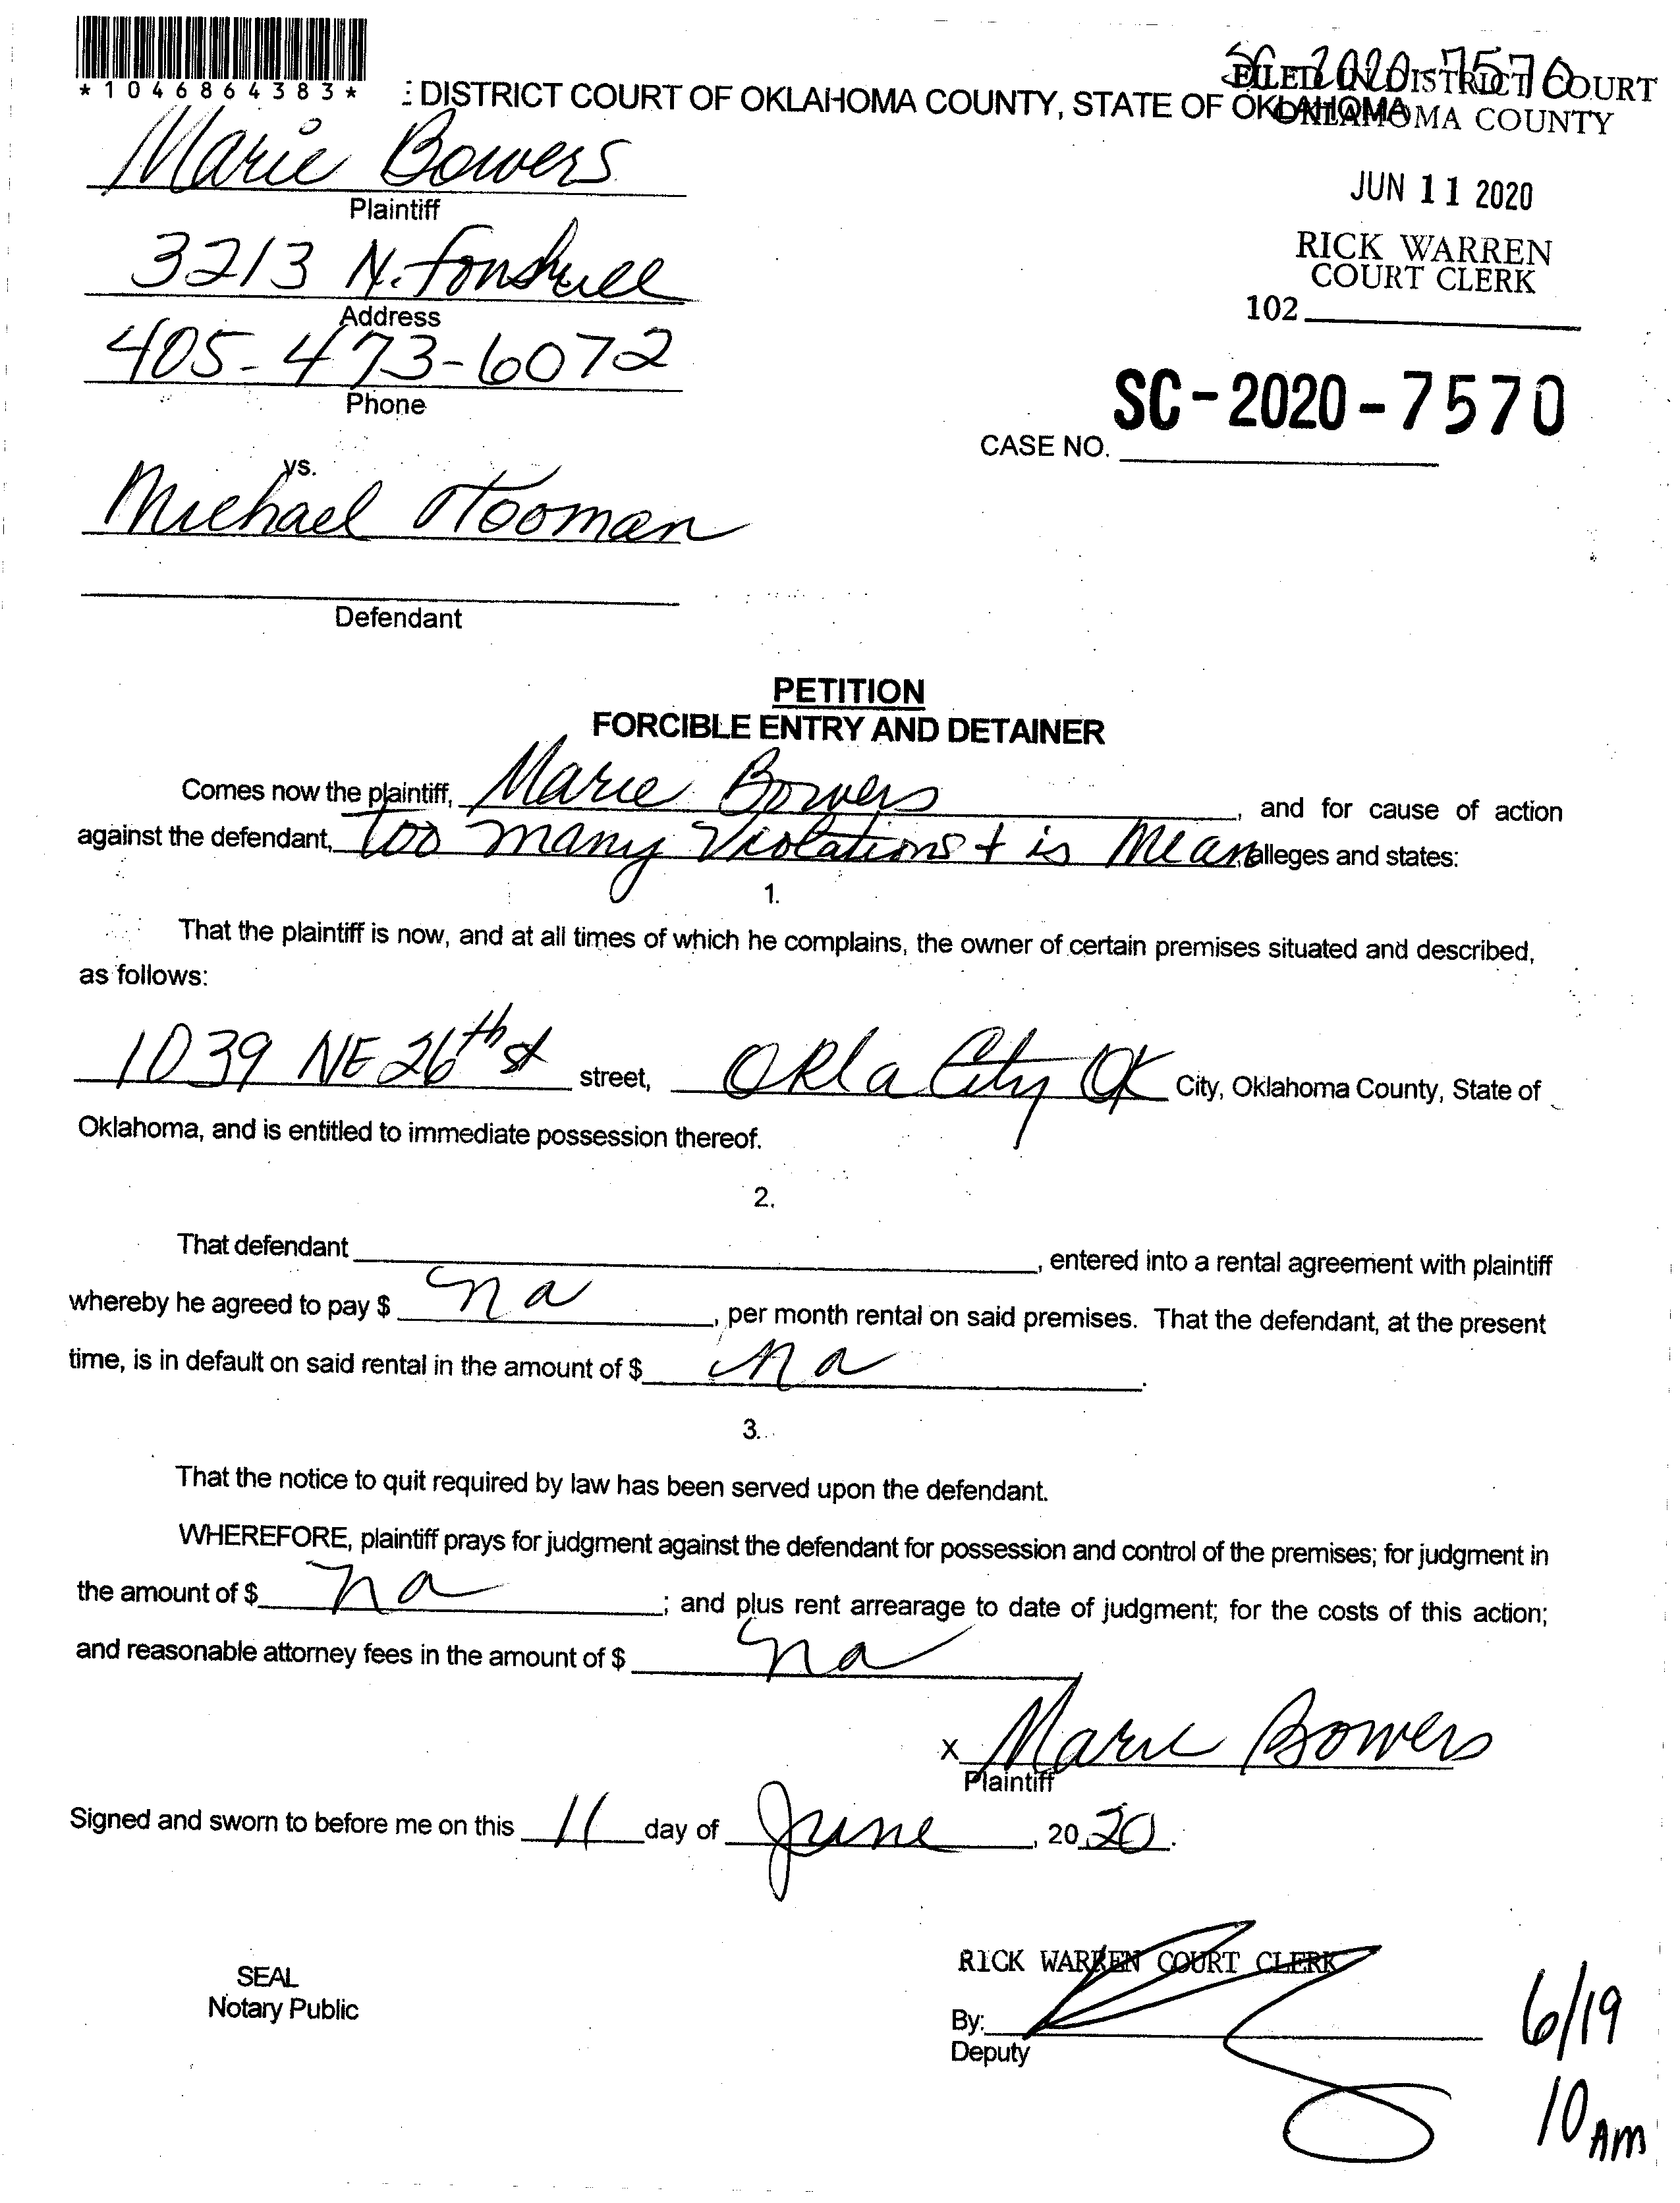 SC-2020-7570
*1046864383*
: DISTRICT COURT OF OKLAHOMA COUNTY, STATE OF OKLAHOMA
FILED IN DISTRICT COURT
OKLAHOMA COUNTY
Marie Bowers
Plaintiff
JUN 11 2020
3213 N. Fonshill
Address
RICK WARREN
COURT CLERK
102
405-473-6072
Phone
SC-2020-7570
CASE NO.
vs.
Michael
Defendant
PETITION
FORCIBLE ENTRY AND DETAINER
Comes now the plaintiff, Marie Bowers, and for cause of action
against the defendant, too many Violations + is Mean, alleges and states:
1.
That the plaintiff is now, and at all times of which he complains, the owner of certain premises situated and described,
as follows:
1039 NE 26th st street, Okla City OK City, Oklahoma County, State of
Oklahoma, and is entitled to immediate possession thereof.
2.
That defendant, entered into a rental agreement with plaintiff
whereby he agreed to pay $ na, per month rental on said premises. That the defendant, at the present
time, is in default on said rental in the amount of $ na.
3.
That the notice to quit required by law has been served upon the defendant.
WHEREFORE, plaintiff prays for judgment against the defendant for possession and control of the premises; for judgment in
the amount of $ na; and plus rent arrearage to date of judgment; for the costs of this action;
and reasonable attorney fees in the amount of $ na
x Marie Bowers
Plaintiff
Signed and sworn to before me on this 11 day of June, 2020.
RICK WARREN COURT CLERK
SEAL
Notary Public
By:
Deputy
6/19
10 AM